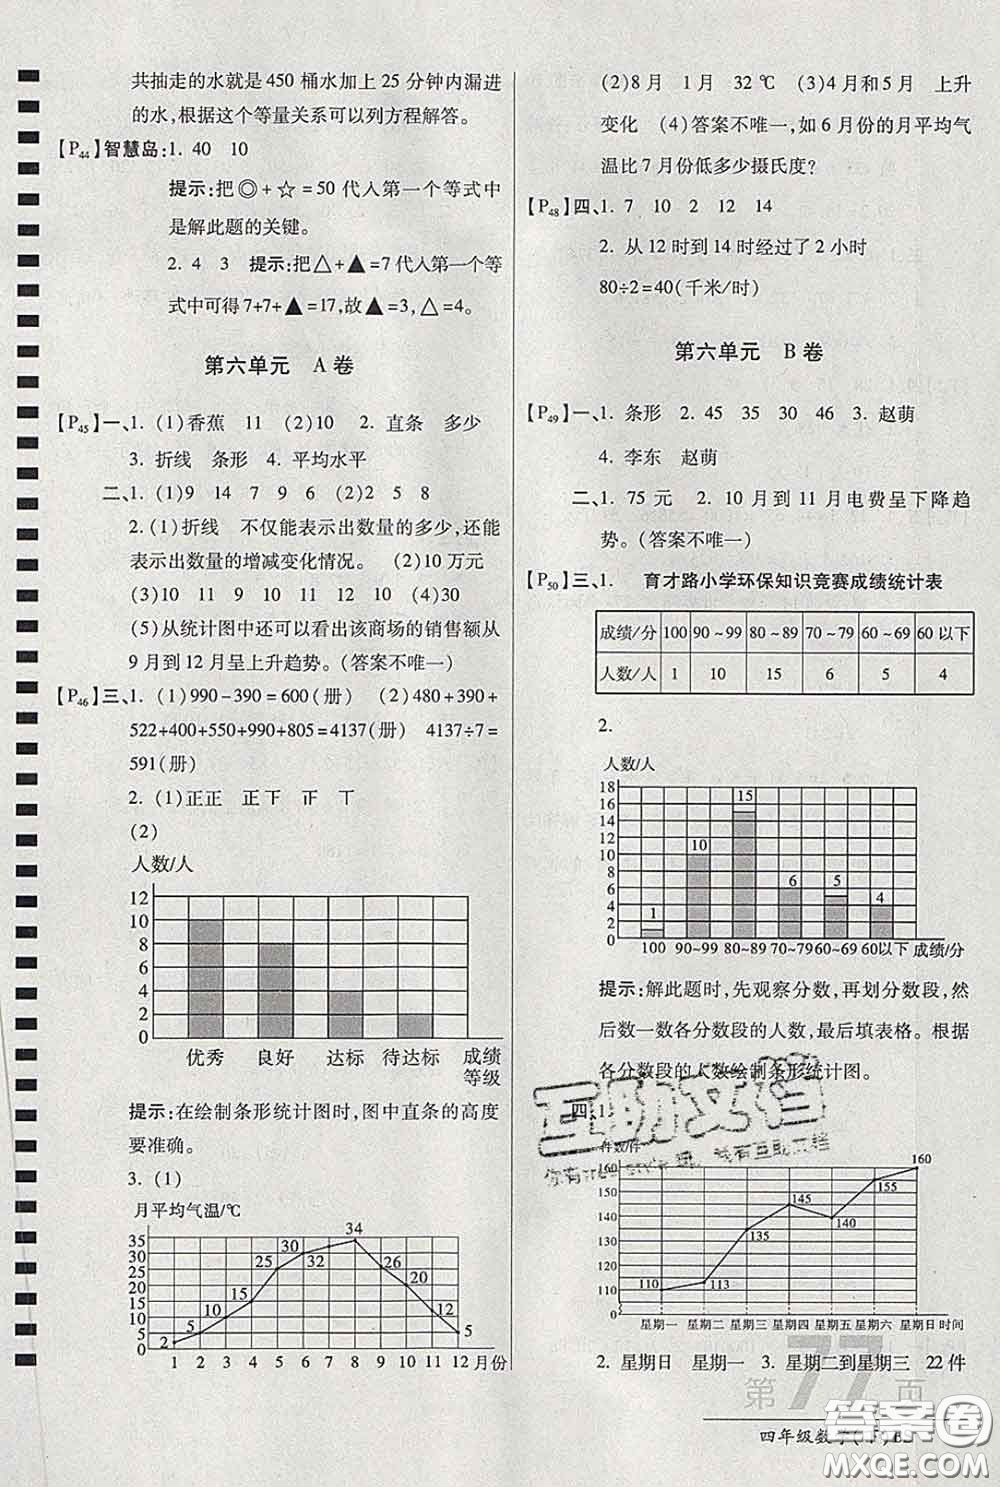 共抽走的水就是 450 桶水加上 25 分钟内漏进
的水,根据这个等量关系可以列方程解答。
【P44】智慧岛:1. 40 10
提示:把◎+☆=50 代入第一个等式中
是解此题的关键。
2. 4 3 提示:把△+▲=7 代入第一个等
式中可得 7+7+▲=17,故▲=3,△=4。
第六单元 A 卷
【P45】一、1. (1)香蕉 11 (2)10 2. 直条 多少
3. 折线 条形 4. 平均水平
二、1. (1)9 14 7 9 6 (2)2 5 8
2. (1)折线 不仅能表示出数量的多少,还能
表示出数量的增减变化情况。 (2)10 万元
(3)8 10 11 12 9 10 (4)30
(5)从统计图中还可以看出该商场的销售额从
9 月到 12 月呈上升趋势。(答案不唯一)
【P46】三、1. (1)990-390=600(册) (2)480+390+
522+400+550+990+805=4137(册) 4137÷7=
591(册)
2. (1)正正 正下 正 丅
(2)
人数/人
12
10
8
6
4
2
0
优秀 良好 达标 待达标 成绩
等级
提示:在绘制条形统计图时,图中直条的高度
要准确。
3. (1)
月平均气温/℃
35
30
25
20
15
10
5
0
2 5 10 15 25 30 32 34 26 20 12 5
1 2 3 4 5 6 7 8 9 10 11 12 月份
(2)8 月 1 月 32 ℃ (3)4 月和 5 月 上升
变化 (4)答案不唯一,如 6 月份的月平均气
温比 7 月份低多少摄氏度?
【P48】四、1. 7 10 2 12 14
2. 从 12 时到 14 时经过了 2 小时
80÷2=40(千米/时)
第六单元 B 卷
【P49】一、1. 条形 2. 45 35 30 46 3. 赵萌
4. 李东 赵萌
二、1. 75 元 2. 10 月到 11 月电费呈下降趋
势。(答案不唯一)
【P50】三、1. 育才路小学环保知识竞赛成绩统计表
成绩/分 100 90~99 80~89 70~79 60~69 60 以下
人数/人 1 10 15 6 5 4
2.
人数/人
18
16
14
12
10
8
6
4
2
0
1 10 15 6 5 4
100 90~99 80~89 70~79 60~69 60以下 成绩/分
提示:解此题时,先观察分数,再划分数段,然
后数一数各分数段的人数,最后填表格。根据
各分数段的人数绘制条形统计图。
互助文档
四、1.
件数/件
160
150
140
130
120
110
100
0
110 113 135 145 140 155 160
星期一 星期二 星期三 星期四 星期五 星期六 星期日 时间
2. 星期日 星期一 3. 星期二到星期三 22 件
第 77 页
四年级数学(下)
答案圈
MXQE.COM